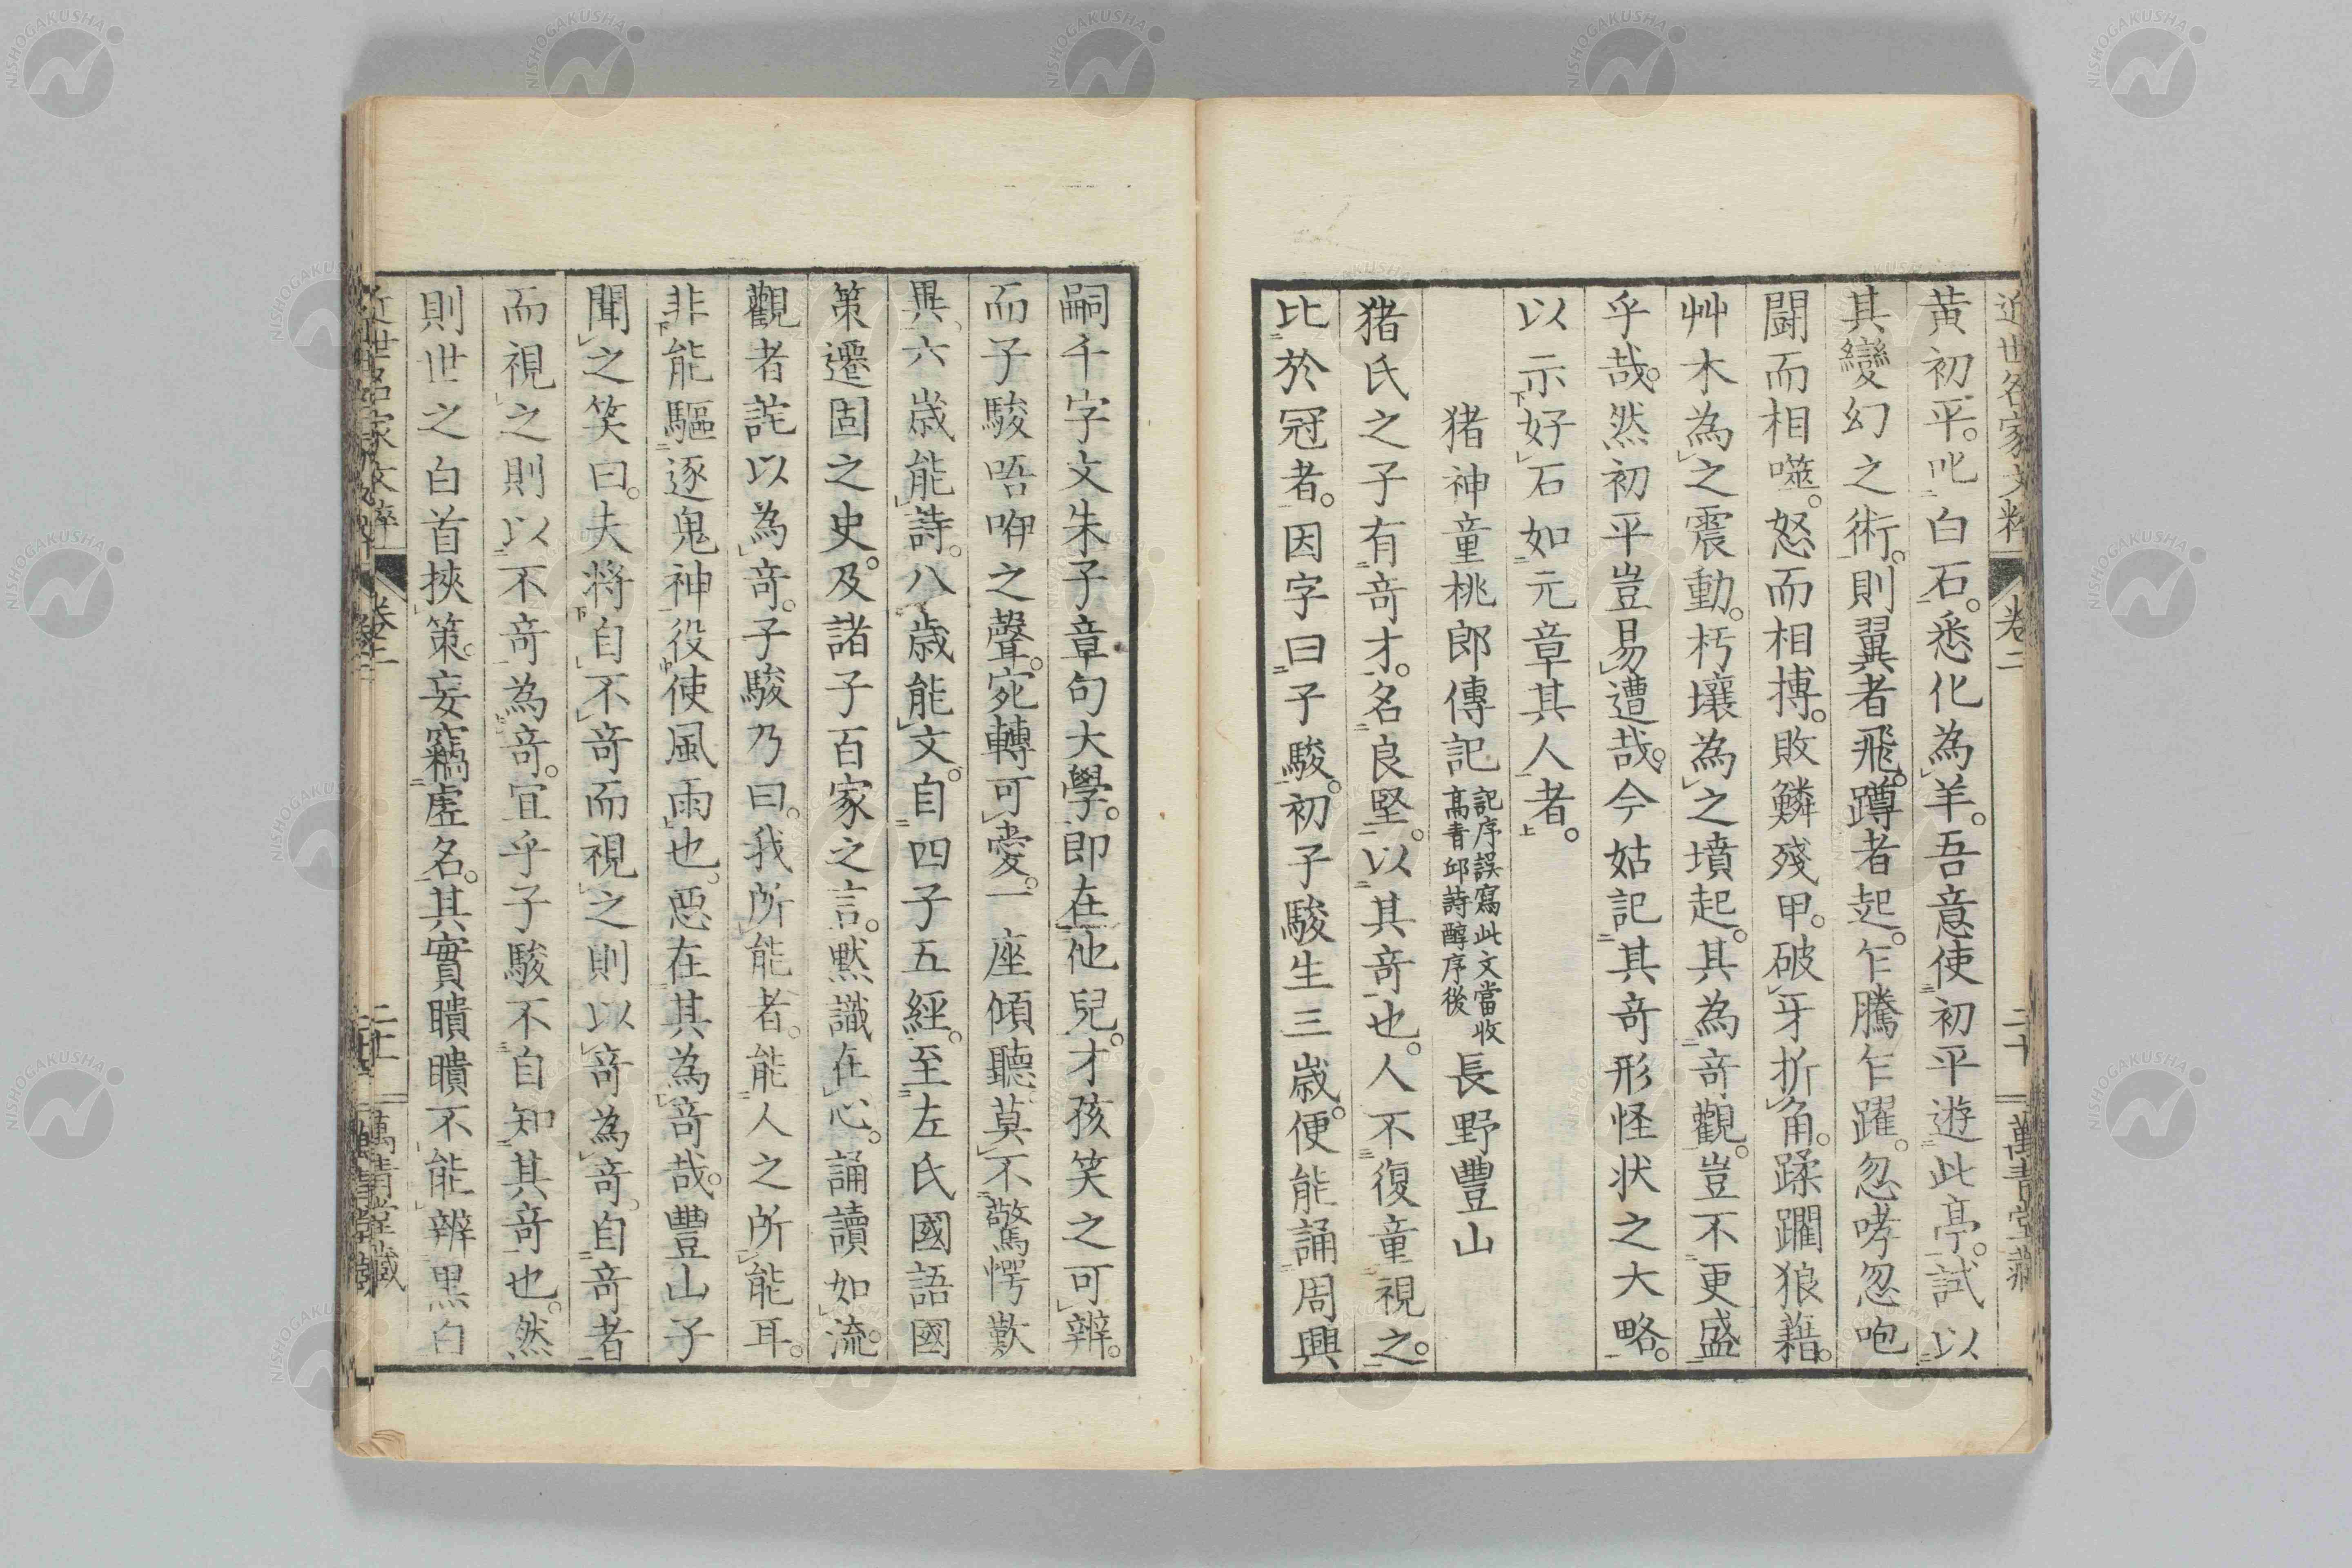 近世名家文粹 卷二 二十 萬青堂藏
黃初平。叱白石。悉化為羊。吾意使初平遊此亭。試以
其變幻之術。則翼者飛。蹲者起。乍騰乍躍。忽哮忽咆
鬪而相噬。怒而相搏。敗鱗殘甲。破牙折角。蹂躙狼藉。
艸木為之震動。朽壤為之墳起。其為竒觀。豈不更盛
乎哉。然初平豈易遭哉。今姑記其竒形怪状之大略。
以示好石如元章其人者。
猪神童桃郎傳記 記序誤寫此文當收高青邱詩醇序後 長野豐山
猪氏之子有竒才。名良堅。以其竒也。人不復童視之。
比於冠者。因字曰子駿。初子駿生三歲。便能誦周興
嗣千字文朱子章句大學。即在他兒。才孩笑之可辨。
而子駿唔咿之聲。宛轉可愛。一座傾聽。莫不驚愕歎
異、六歲能詩。八歲能文。自四子五經。至左氏國語國
策遷固之史。及諸子百家之言。默識在心。誦讀如流。
觀者詫以為竒。子駿乃曰。我所能者。能人之所能耳。
非能驅逐鬼神役使風雨也。惡在其為竒哉。豐山子
聞之笑曰。夫將自不竒而視之則以竒為竒。自竒者
而視之則以不竒為竒。宜乎子駿不自知其竒也。然
則世之白首挾策。妄竊虛名。其實瞶瞶不能辨黑白
近世名家文粹 卷二 二十一 萬青堂藏
NISHOGAKUSHA